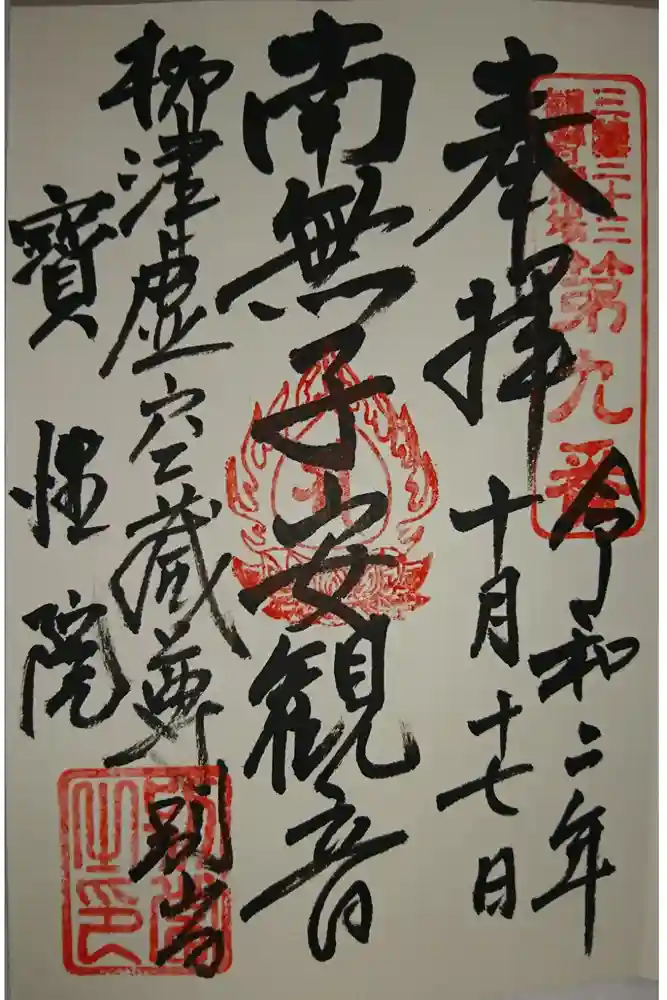 三陸三十三
観音霊場
第九番
奉拝
令和二年
十月十七日
南無子安観音
柳津虚空蔵尊別當
寳性院